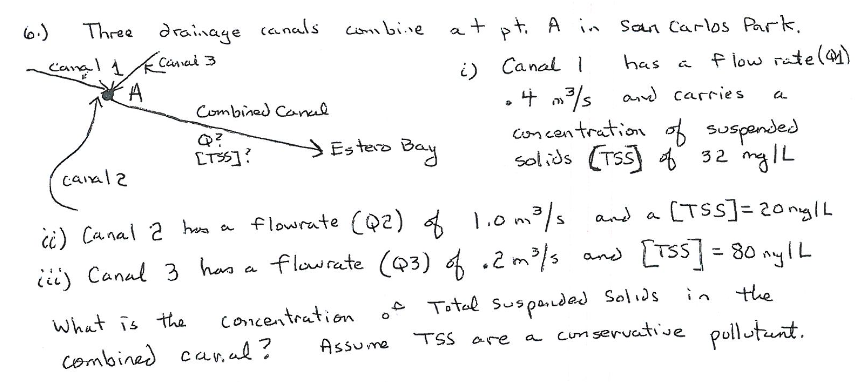 6.) Three drainage canals combine at pt. A in San Carlos Park.
Canal 1
Canal 3
A
Combined Canal
Q?
[TSS]?
Estero Bay
Canal 2
i) Canal 1 has a flow rate (Q1)
.4 m³/s and carries a
concentration of suspended
solids [TSS] of 32 mg/L
ii) Canal 2 has a flowrate (Q2) of 1.0 m³/s and a [TSS] = 20 mg/L
iii) Canal 3 has a flowrate (Q3) of .2 m³/s and [TSS] = 80 mg/L
What is the concentration of Total Suspended Solids in the
combined canal? Assume TSS are a conservative pollutant.